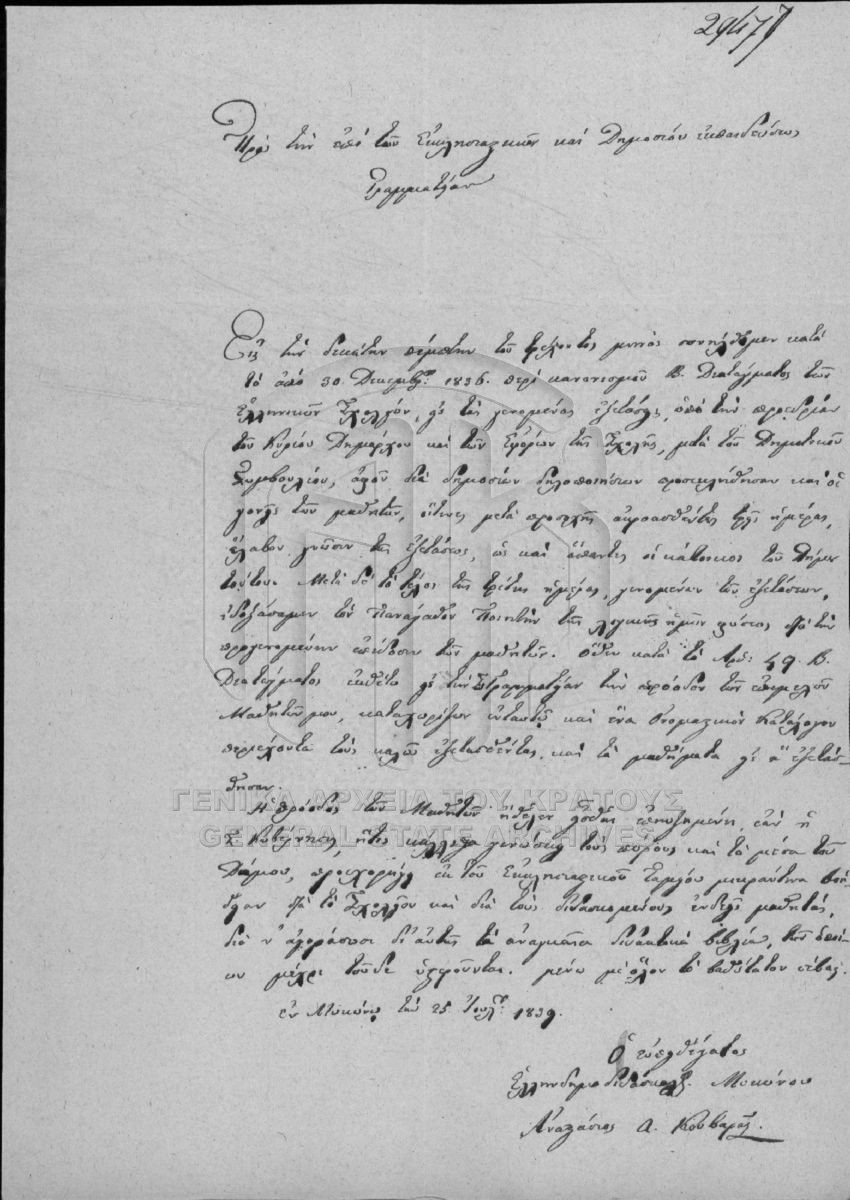 29477
Πρὸς τὴν ἐπὶ τῶν Ἐκκλησιαστικῶν καὶ Δημοσίου ἐκπαιδεύσεως
Γραμματείαν
Εἰς τὴν δεκάτην πέμπτην τοῦ τρέχοντος μηνὸς συνήλθομεν κατὰ
τὸ ἀπὸ 30 Δεκεμβρ. 1836. περὶ κανονισμοῦ Β. Διατάγματος τῶν
Ἑλληνικῶν Σχολείων, εἰς τὰς γενομένας ἐξετάσεις, ὑπὸ τὴν προεδρίαν
τοῦ Κυρίου Δημάρχου καὶ τῶν Ἐφόρων τῆς Σχολῆς, μετὰ τοῦ Δημοτικοῦ
Συμβουλίου, ἀφοῦ διὰ δημοσίων δηλοποιήσεων προσεκλήθησαν καὶ οἱ
γονεῖς τῶν μαθητῶν, οἵτινες μετὰ προσοχῆς ἀκροασθέντες τρεῖς ἡμέρας,
ἔλαβον γνῶσιν τῆς ἐξετάσεως, ὡς καὶ ἅπαντες οἱ κάτοικοι τοῦ Δήμου
τούτου. Μετὰ δὲ τὸ τέλος τῆς τρίτης ἡμέρας, γενομένων τῶν ἐξετάσεων,
ἐδοξάσαμεν τὸν Πανάγαθον Ποιητὴν τῆς λογικῆς ἡμῶν φύσεως διὰ τὴν
προγενομένην ἐπίδοσιν τῶν μαθητῶν. Ὅθεν κατὰ τὸ Ἀρθ: 49. Β.
Διατάγματος ἐκθέτω εἰς τὴν Γραμματείαν τὴν πρόοδον τῶν ἐπιμελῶν
Μαθητῶν μου, καταχωρίζων ἐνταυτῷ καὶ ἕνα Ὀνομαστικὸν Κατάλογον
περιέχοντα τοὺς καλῶς ἐξετασθέντας, καὶ τὰ μαθήματα εἰς ἃ ἐξετάσ-
θησαν.
Ἡ πρόοδος τῶν Μαθητῶν ἤθελεν εἶσθαι ἐπηυξημένη, ἐὰν ἡ
Σ. Κυβέρνησις, ἥτις κάλλιστα γινώσκει τοὺς πόρους καὶ τὰ μέσα τοῦ
Δήμου, προεχορήγει ἐκ τοῦ Ἐκκλησιαστικοῦ Ταμείου μικράν τινα βοή-
θειαν διὰ τὸ Σχολεῖον καὶ διὰ τοὺς διδασκομένους ἐνδεεῖς μαθητάς,
διὰ ν' ἀγοράσωσι δι' αὐτῆς τὰ ἀναγκαῖα διδακτικὰ βιβλία, τῶν ὁποί-
ων μέχρι τοῦδε ὑστεροῦνται. μένω μὲ ὅλον τὸ βαθύτατον σέβας.
ἐν Μυκόνῳ τὴν 25 Ἰουλ. 1839.
Ὁ εὐπειθέστατος
Ἑλληνοδημοδιδάσκαλος Μυκόνου
Ἀναστάσιος Α. Κουβαρᾶς.
ΓΕΝΙΚΑ ΑΡΧΕΙΑ ΤΟΥ ΚΡΑΤΟΥΣ
GENERAL STATE ARCHIVES